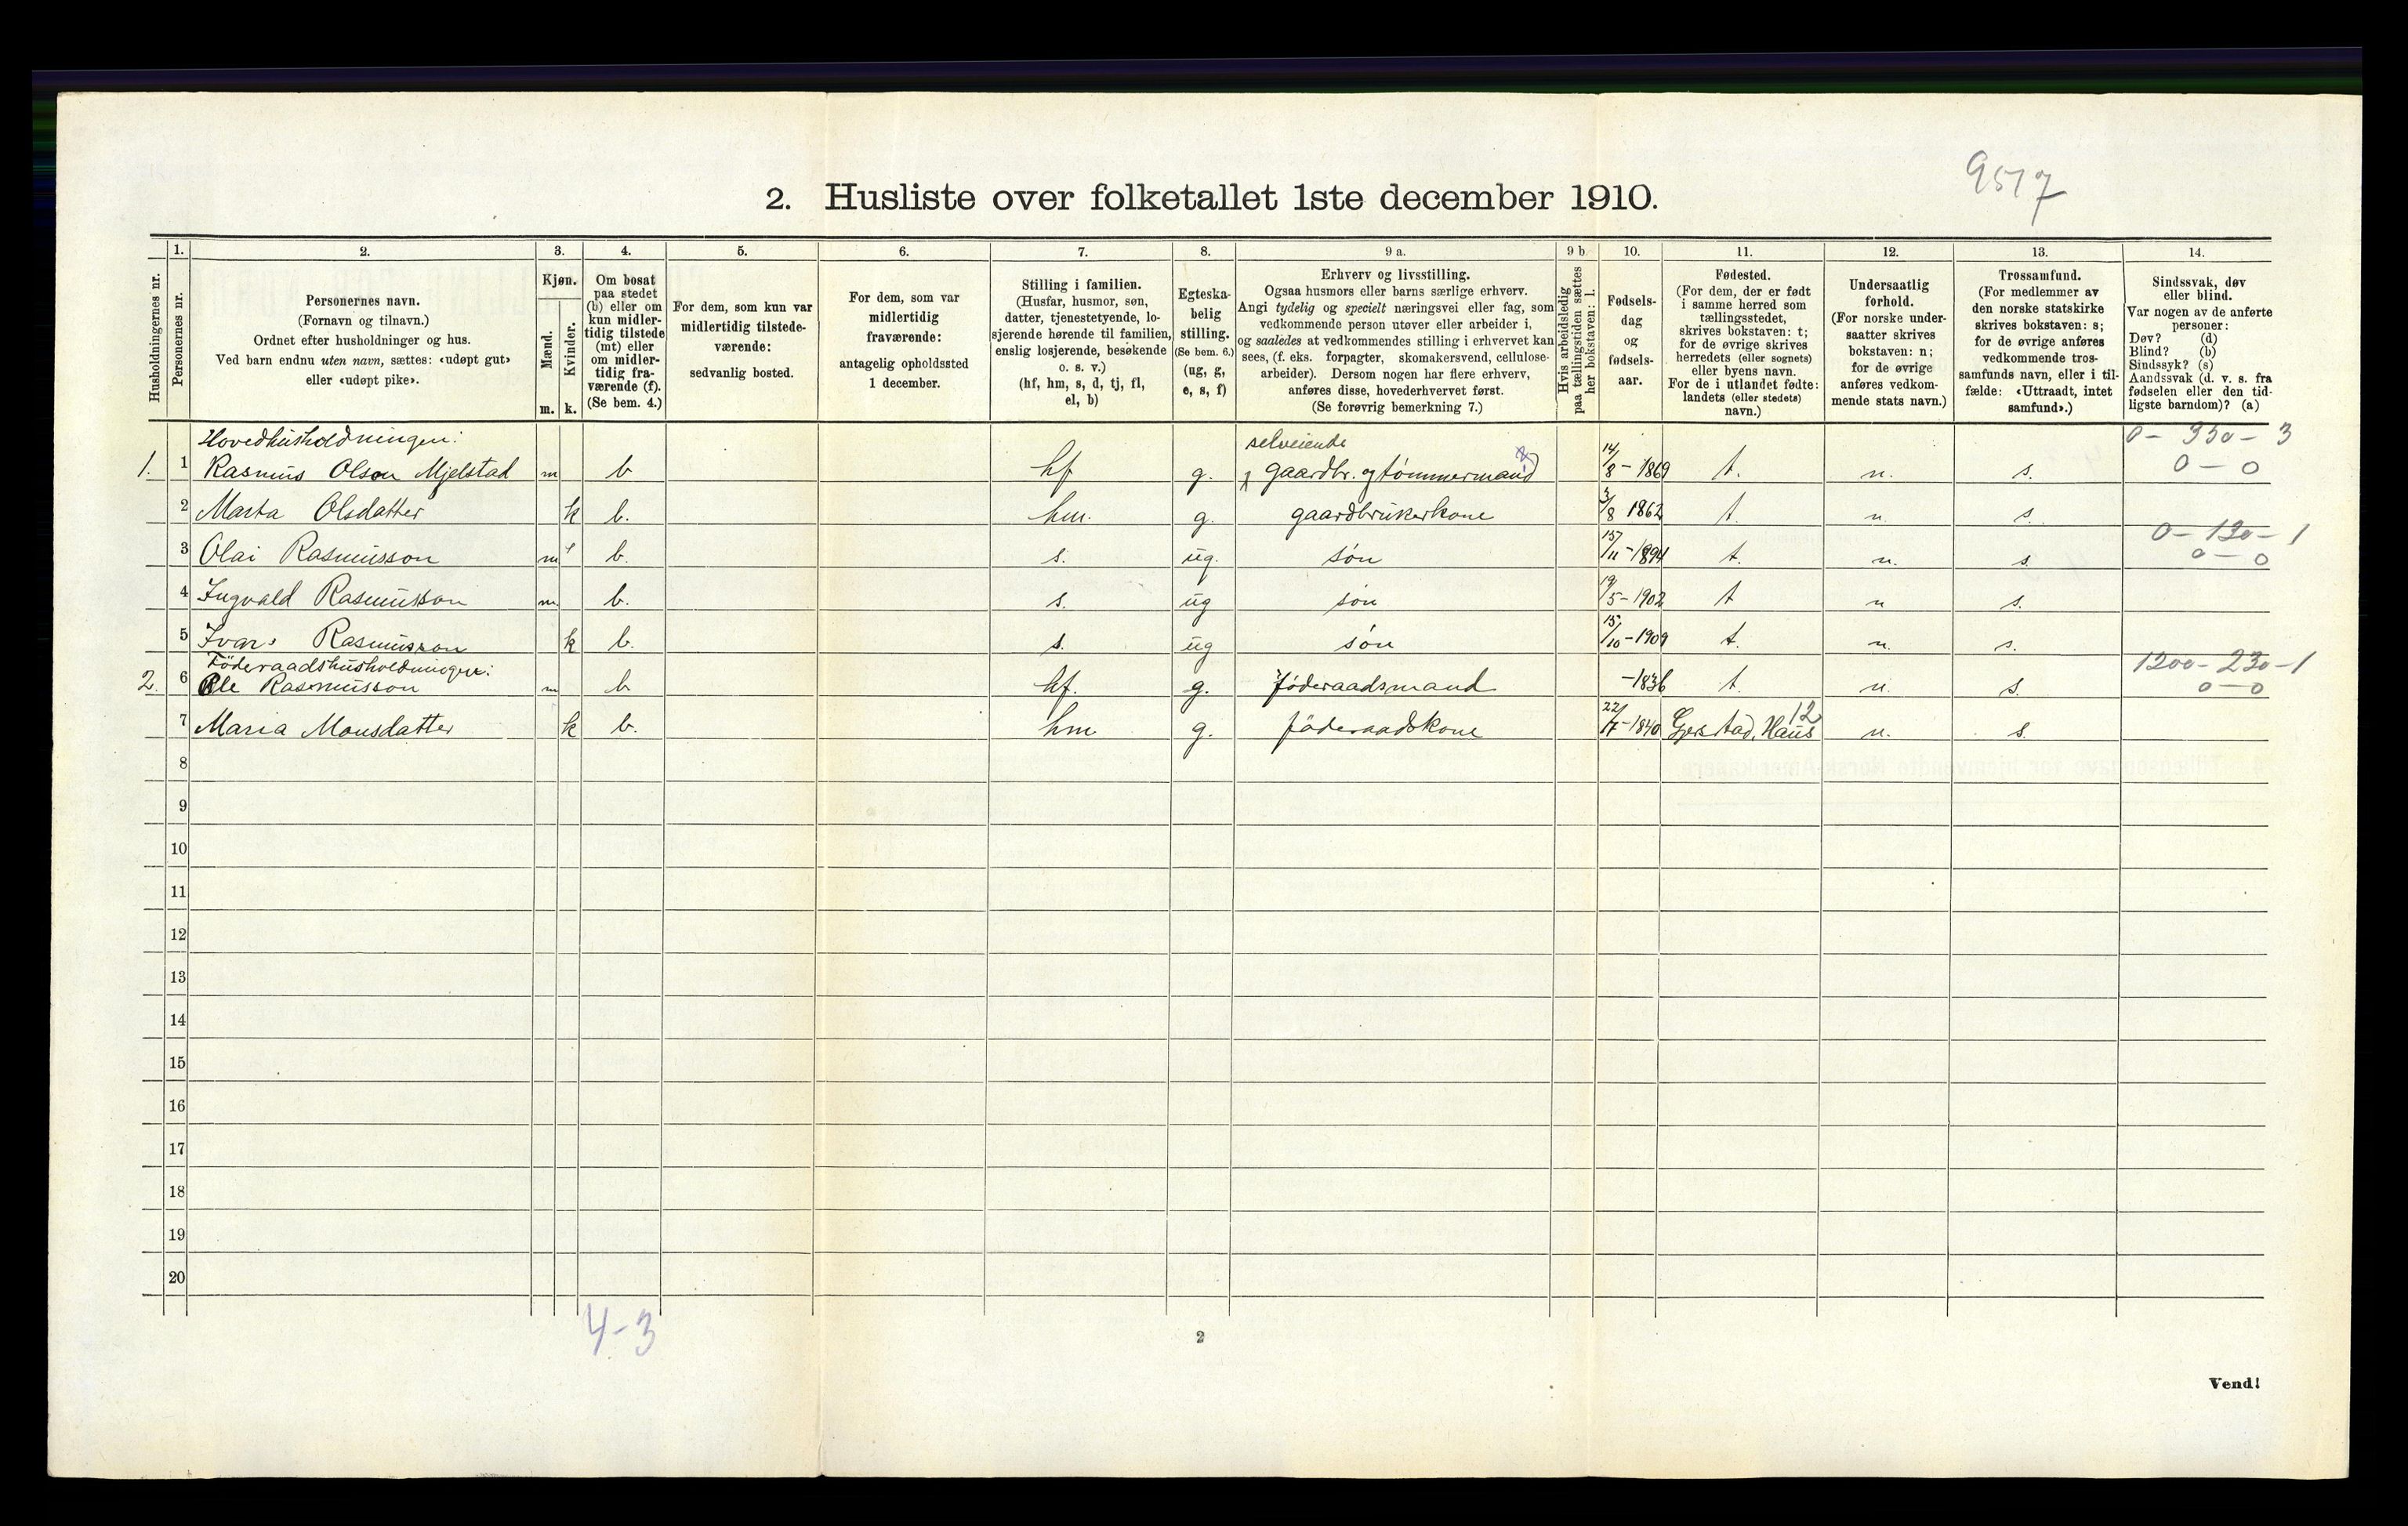 9517
2. Husliste over folketallet 1ste december 1910.
Husholdningernes nr.
1.
Personernes nr.
2.
Personernes navn.
(Fornavn og tilnavn.)
Ordnet efter husholdninger og hus.
Ved barn endnu uten navn, sættes: «udøpt gut»
eller «udøpt pike».
3.
Kjøn.
Mænd.
Kvinder.
m. k.
4.
Om bosat
paa stedet
(b) eller om
kun midler-
tidig tilstede
(mt) eller
om midler-
tidig fra-
værende (f).
(Se bem. 4.)
5.
For dem, som kun var
midlertidig tilstede-
værende:
sedvanlig bosted.
6.
For dem, som var
midlertidig
fraværende:
antagelig opholdssted
1 december.
7.
Stilling i familien.
(Husfar, husmor, søn,
datter, tjenestetyende, lo-
sjerende hørende til familien,
enslig losjerende, besøkende
o. s. v.)
(hf, hm, s, d, tj, fl,
el, b)
8.
Egteska-
belig
stilling.
(Se bem. 6.)
(ug, g,
e, s, f)
9 a.
Erhverv og livsstilling.
Ogsaa husmors eller barns særlige erhverv.
Angi tydelig og specielt næringsvei eller fag, som
vedkommende person utøver eller arbeider i,
og saaledes at vedkommendes stilling i erhvervet kan
sees, (f. eks. forpagter, skomakersvend, cellulose-
arbeider). Dersom nogen har flere erhverv,
anføres disse, hovederhvervet først.
(Se forøvrig bemerkning 7.)
9 b.
Hvis arbeidsledig
paa tællingstiden sættes
her bokstaven: l.
10.
Fødsels-
dag
og
fødsels-
aar.
11.
Fødested.
(For dem, der er født
i samme herred som
tællingsstedet,
skrives bokstaven: t;
for de øvrige skrives
herredets (eller sognets)
eller byens navn.
For de i utlandet fødte:
landets (eller stedets)
navn.)
12.
Undersaatlig
forhold.
(For norske under-
saatter skrives
bokstaven: n;
for de øvrige
anføres vedkom-
mende stats navn.)
13.
Trossamfund.
(For medlemmer av
den norske statskirke
skrives bokstaven: s;
for de øvrige anføres
vedkommende tros-
samfunds navn, eller i til-
fælde: «Uttraadt, intet
samfund».)
14.
Sindssvak, døv
eller blind.
Var nogen av de anførte
personer:
Døv? (d)
Blind? (b)
Sindssyk? (s)
Aandssvak (d. v. s. fra
fødselen eller den tid-
ligste barndom)? (a)
Hovedhusholdningen: selveiende 0 - 350 - 3
1. 1 Rasmus Olson Mjelstad m b hf g. gaardbr. og tømmermand 14/8 - 1869 t. n. s. 0 - 0
2 Marta Olsdatter k b. hm. g. gaardbrukerkone 3/8 1862 t. n s. 
3 Olai Rasmusson m b. s. ug. søn 15/11 - 1894 t. n. s. 0 - 130 - 1
0 - 0
4 Ingvald Rasmusson m. b. s. ug søn 19/5 - 1902 t n s.
5 Ivar Rasmusson k b. s. ug søn 15/10 - 1909 t. n. s.
Föderaadshusholdningen: 1200 - 230 - 1
2. 6 Ole Rasmusson m b hf. g. föderaadsmand - 1836 t. n. s. 0 - 0
7 Maria Monsdatter k b. hm g. föderaadskone 22/ - 1840 Haus 12 n. s.
8
9
10
11
12
13
14
15
16
17
18
19
20
4-3
2
Vend!